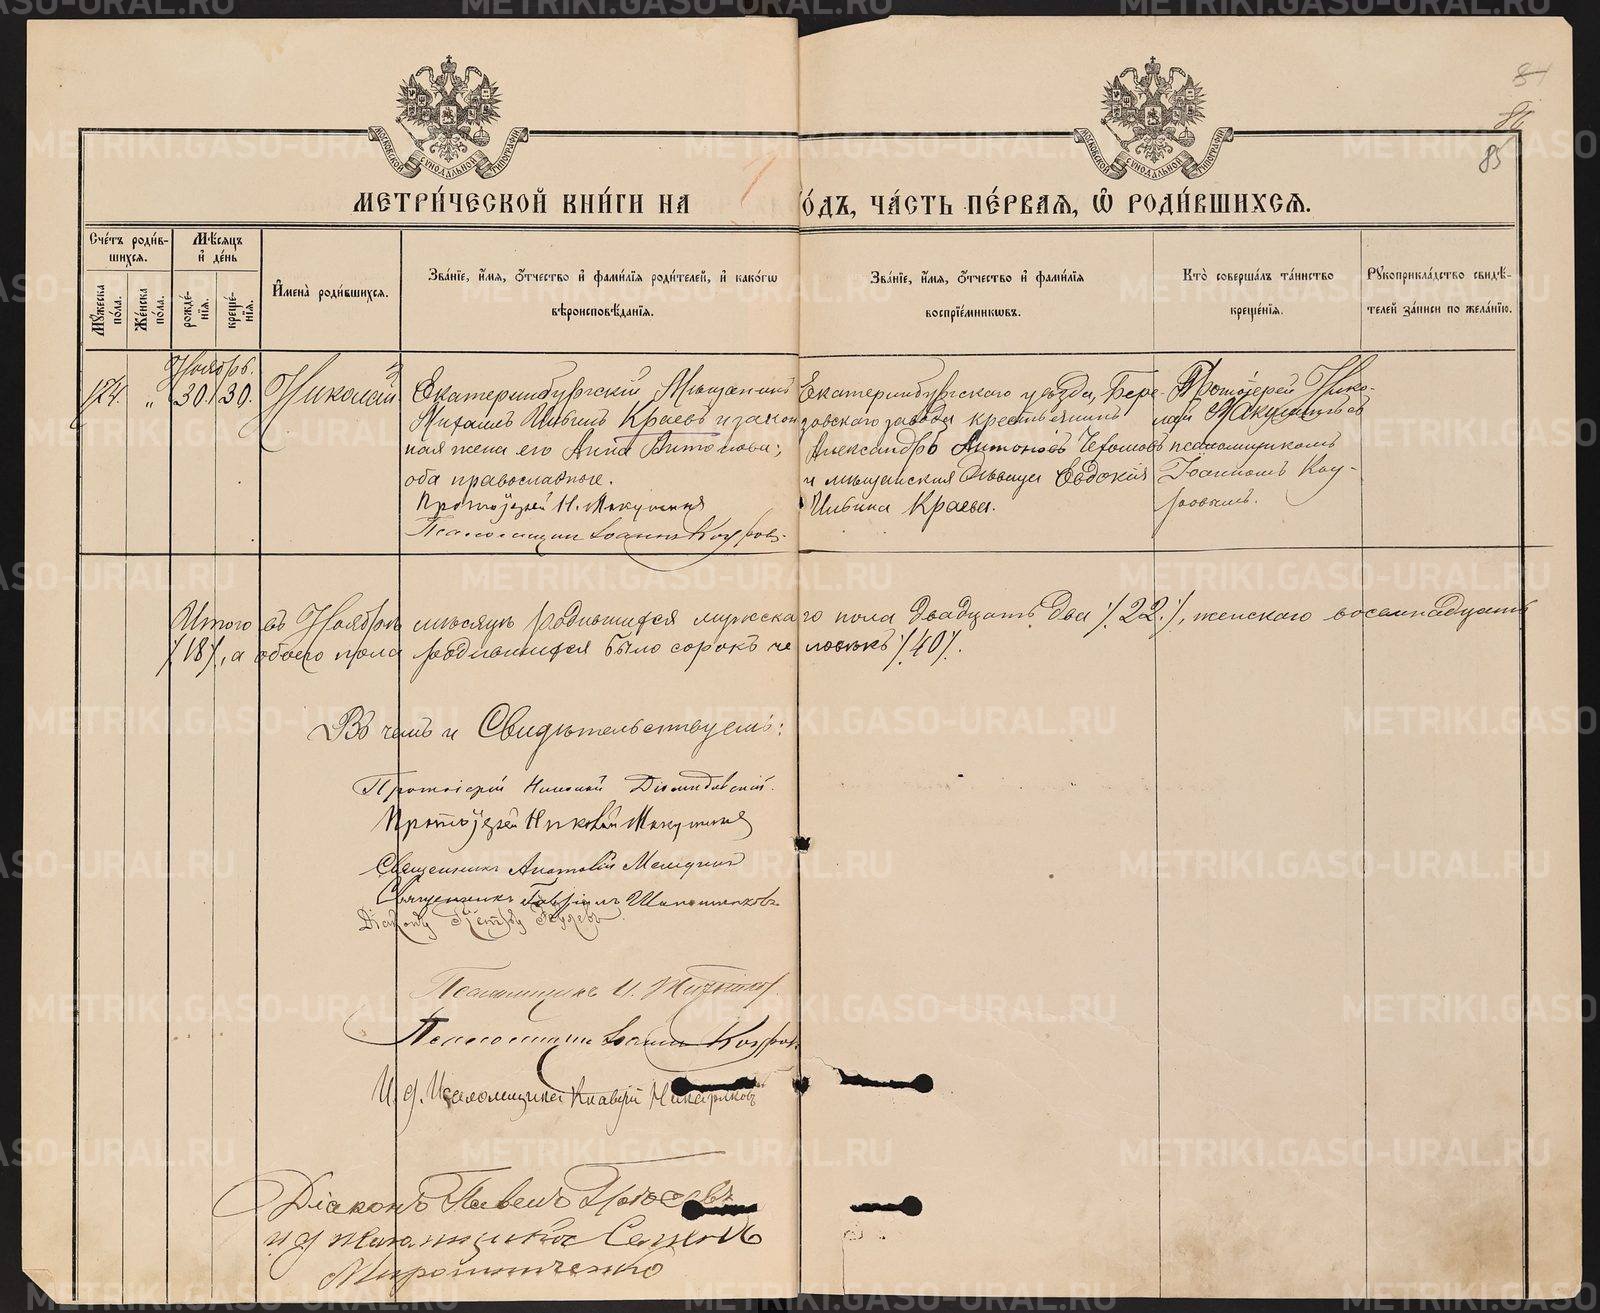 84
85
МОСКОВСКОЙ СУНОДАЛЬНОЙ ТИПОГРАФІИ
МОСКОВСКОЙ СУНОДАЛЬНОЙ ТИПОГРАФІИ
МЕТРИ́ЧЕСКОЙ КНИ́ГИ НА
О́ДЪ, ЧА́СТЬ ПЕ́РВАЯ, Ѡ РОДИ́ВШИХСЯ.
Сче́тъ роди́в-
шихся.
Мꙋжеска по́ла.
Же́нска по́ла.
Мѣ́сяцъ
и҆ де́нь
рожде́-
нїя.
креще́-
нїя.
И҆мена̀ роди́вшихся.
Зва́нїе, и҆́мя, ѻ҆́тчество и҆ фами́лїя роди́телей, и҆ како́гѡ
вѣроисповѣ́данїя.
Зва́нїе, и҆́мя, ѻ҆́тчество и҆ фами́лїя
воспрїе́мникѡвъ.
Кто̀ соверша́лъ та́инство
креще́нїя.
Рꙋкоприкла́дство свидѣ́-
телей за́писи по жела́нїю.
Ноябрь.
124. „ 30. 30. Николай
Екатеринбургскій Мѣщанинъ
Михаилъ Ильинъ Краевъ и закон
ная жена его Анна Антонова;
оба православные.
Протоіерей Н. Макушинъ
Псаломщикъ Іоаннъ
Екатеринбургскаго уѣзда, Бере-
зовскаго завода крестьянинъ
Александръ Антоновъ
и мѣщанская дѣвица Евдокія
Ильина Краева.
Протоіерей Нико-
лай Макушинъ съ
псаломщикомъ
Іоанномъ
Итого въ Ноябрѣ мѣсяцѣ родившихся мужскаго пола двадцать два /.22./, женскаго восемнадцать
/.18/, а обоего пола родившихся было сорокъ человѣкъ /.40/.
Въ чемъ и Свидѣтельствуемъ:
Протоіерей Николай Діомидовскій.
Протоіерей Николай Макушинъ
Священникъ Анатолій
Священникъ Гавріилъ Шапошниковъ
Діаконъ Петръ
Псаломщикъ И.
Псаломщикъ Іоаннъ
И. д. Псаломщика
Діаконъ Павелъ
и д псаломщика Самуилъ
Мирошниченко
METRIKI.GASO-URAL.RU